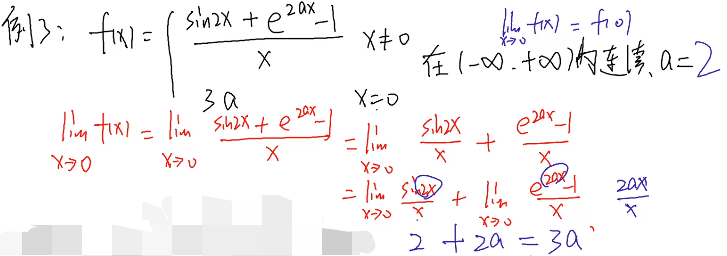 例3: f(x) = { (sin2x + e^{2ax} - 1)/x x≠0
3a x=0
lim_{x→0} f(x) = f(0)
在 (-∞.+∞) 内连续, a=2
lim_{x→0} f(x) = lim_{x→0} (sin2x + e^{2ax} - 1)/x = lim_{x→0} sin2x/x + (e^{2ax} - 1)/x
= lim_{x→0} sin2x/x + lim_{x→0} (e^{2ax} - 1)/x 2ax/x
2 + 2a = 3a